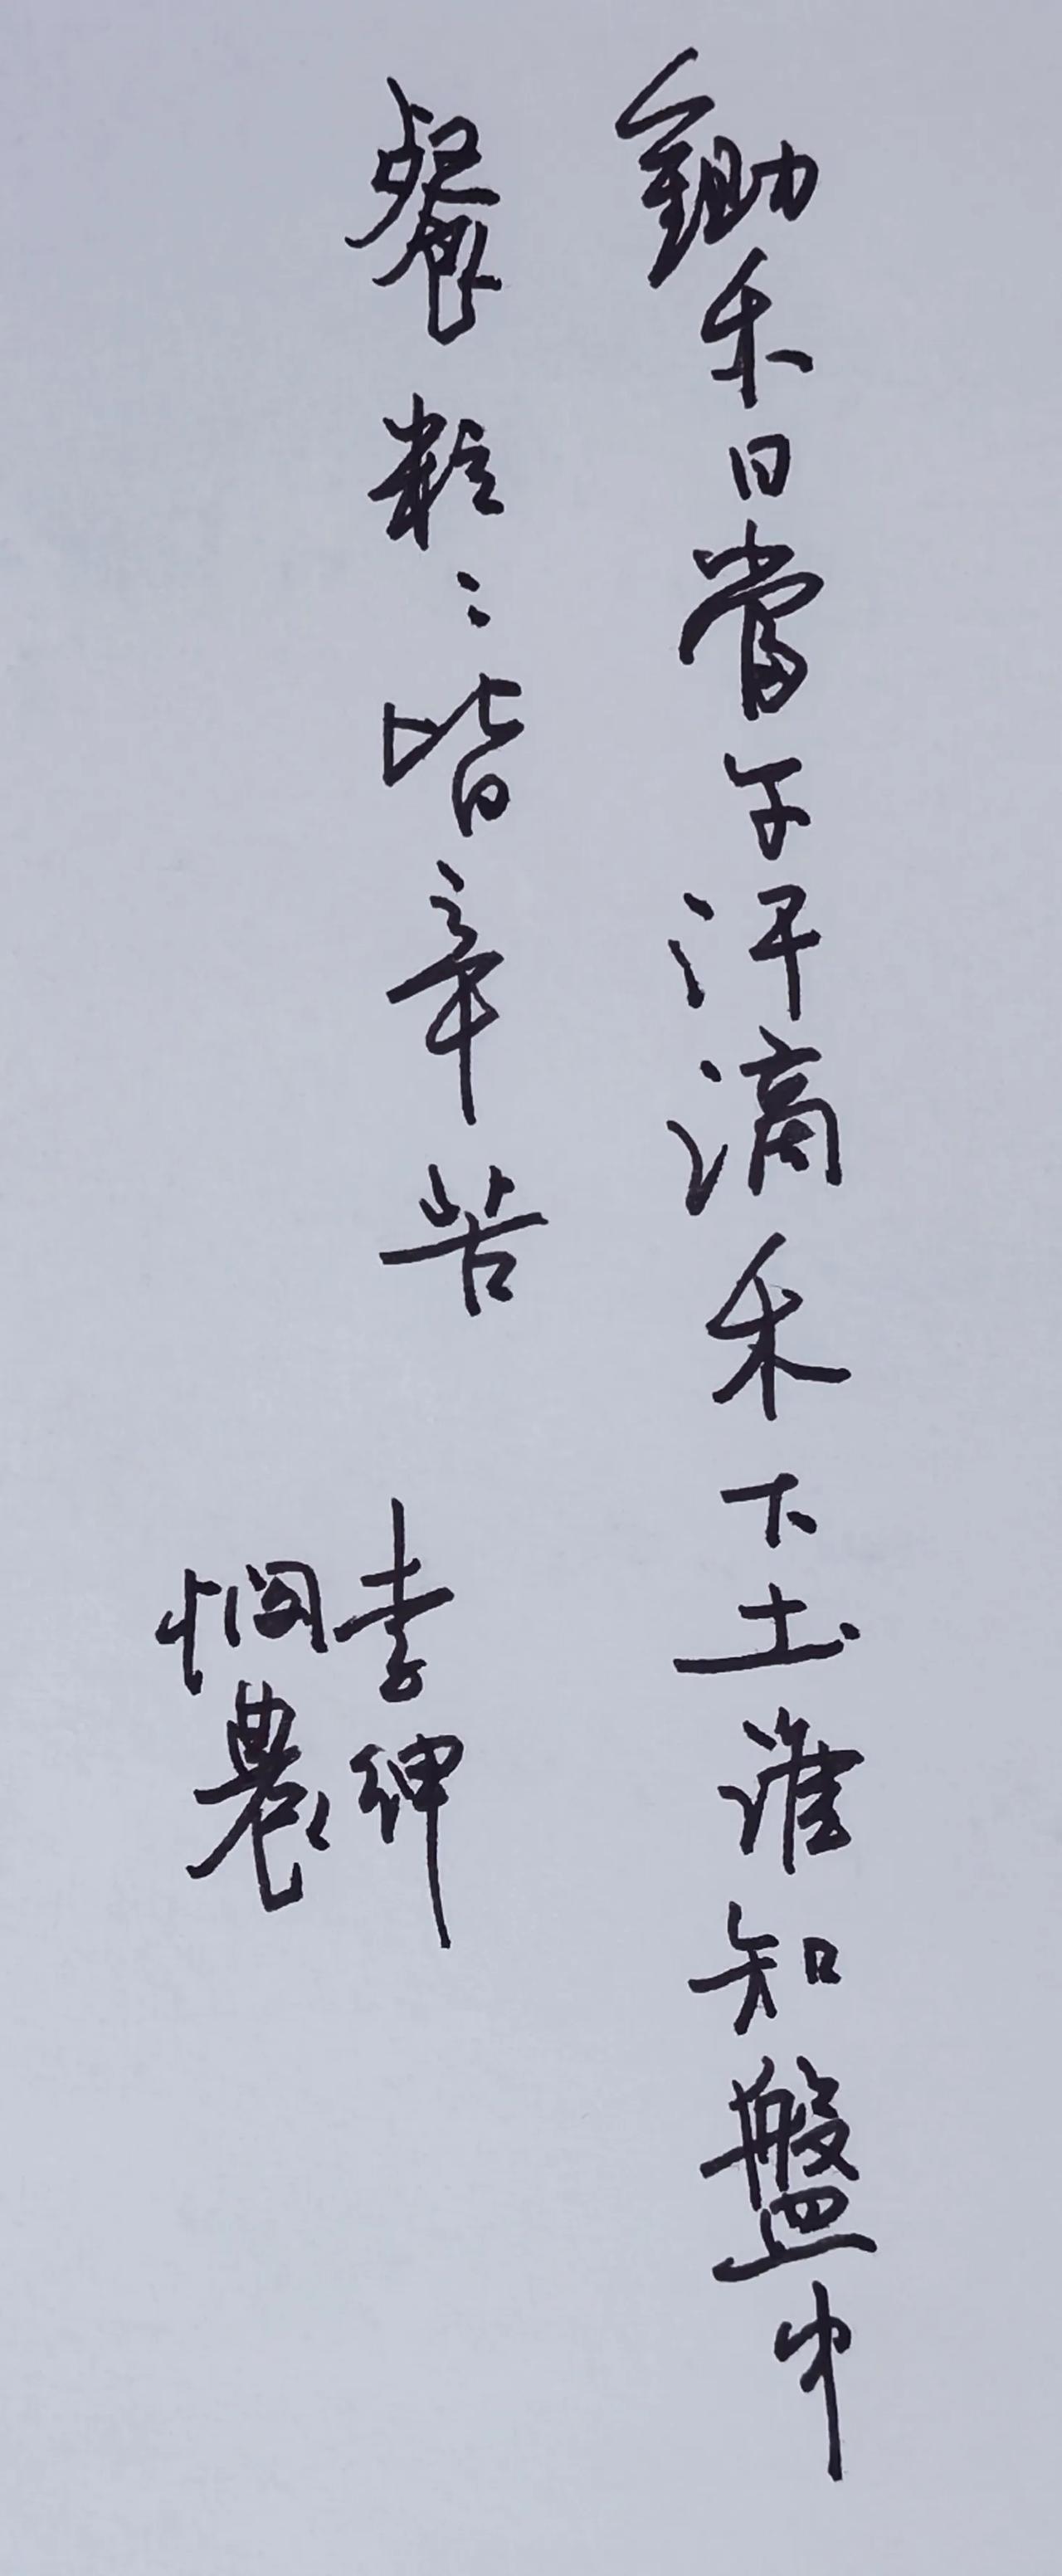 鋤禾日當午汗滴禾下土誰知盤中
餐粒〻皆辛苦
李紳
憫農